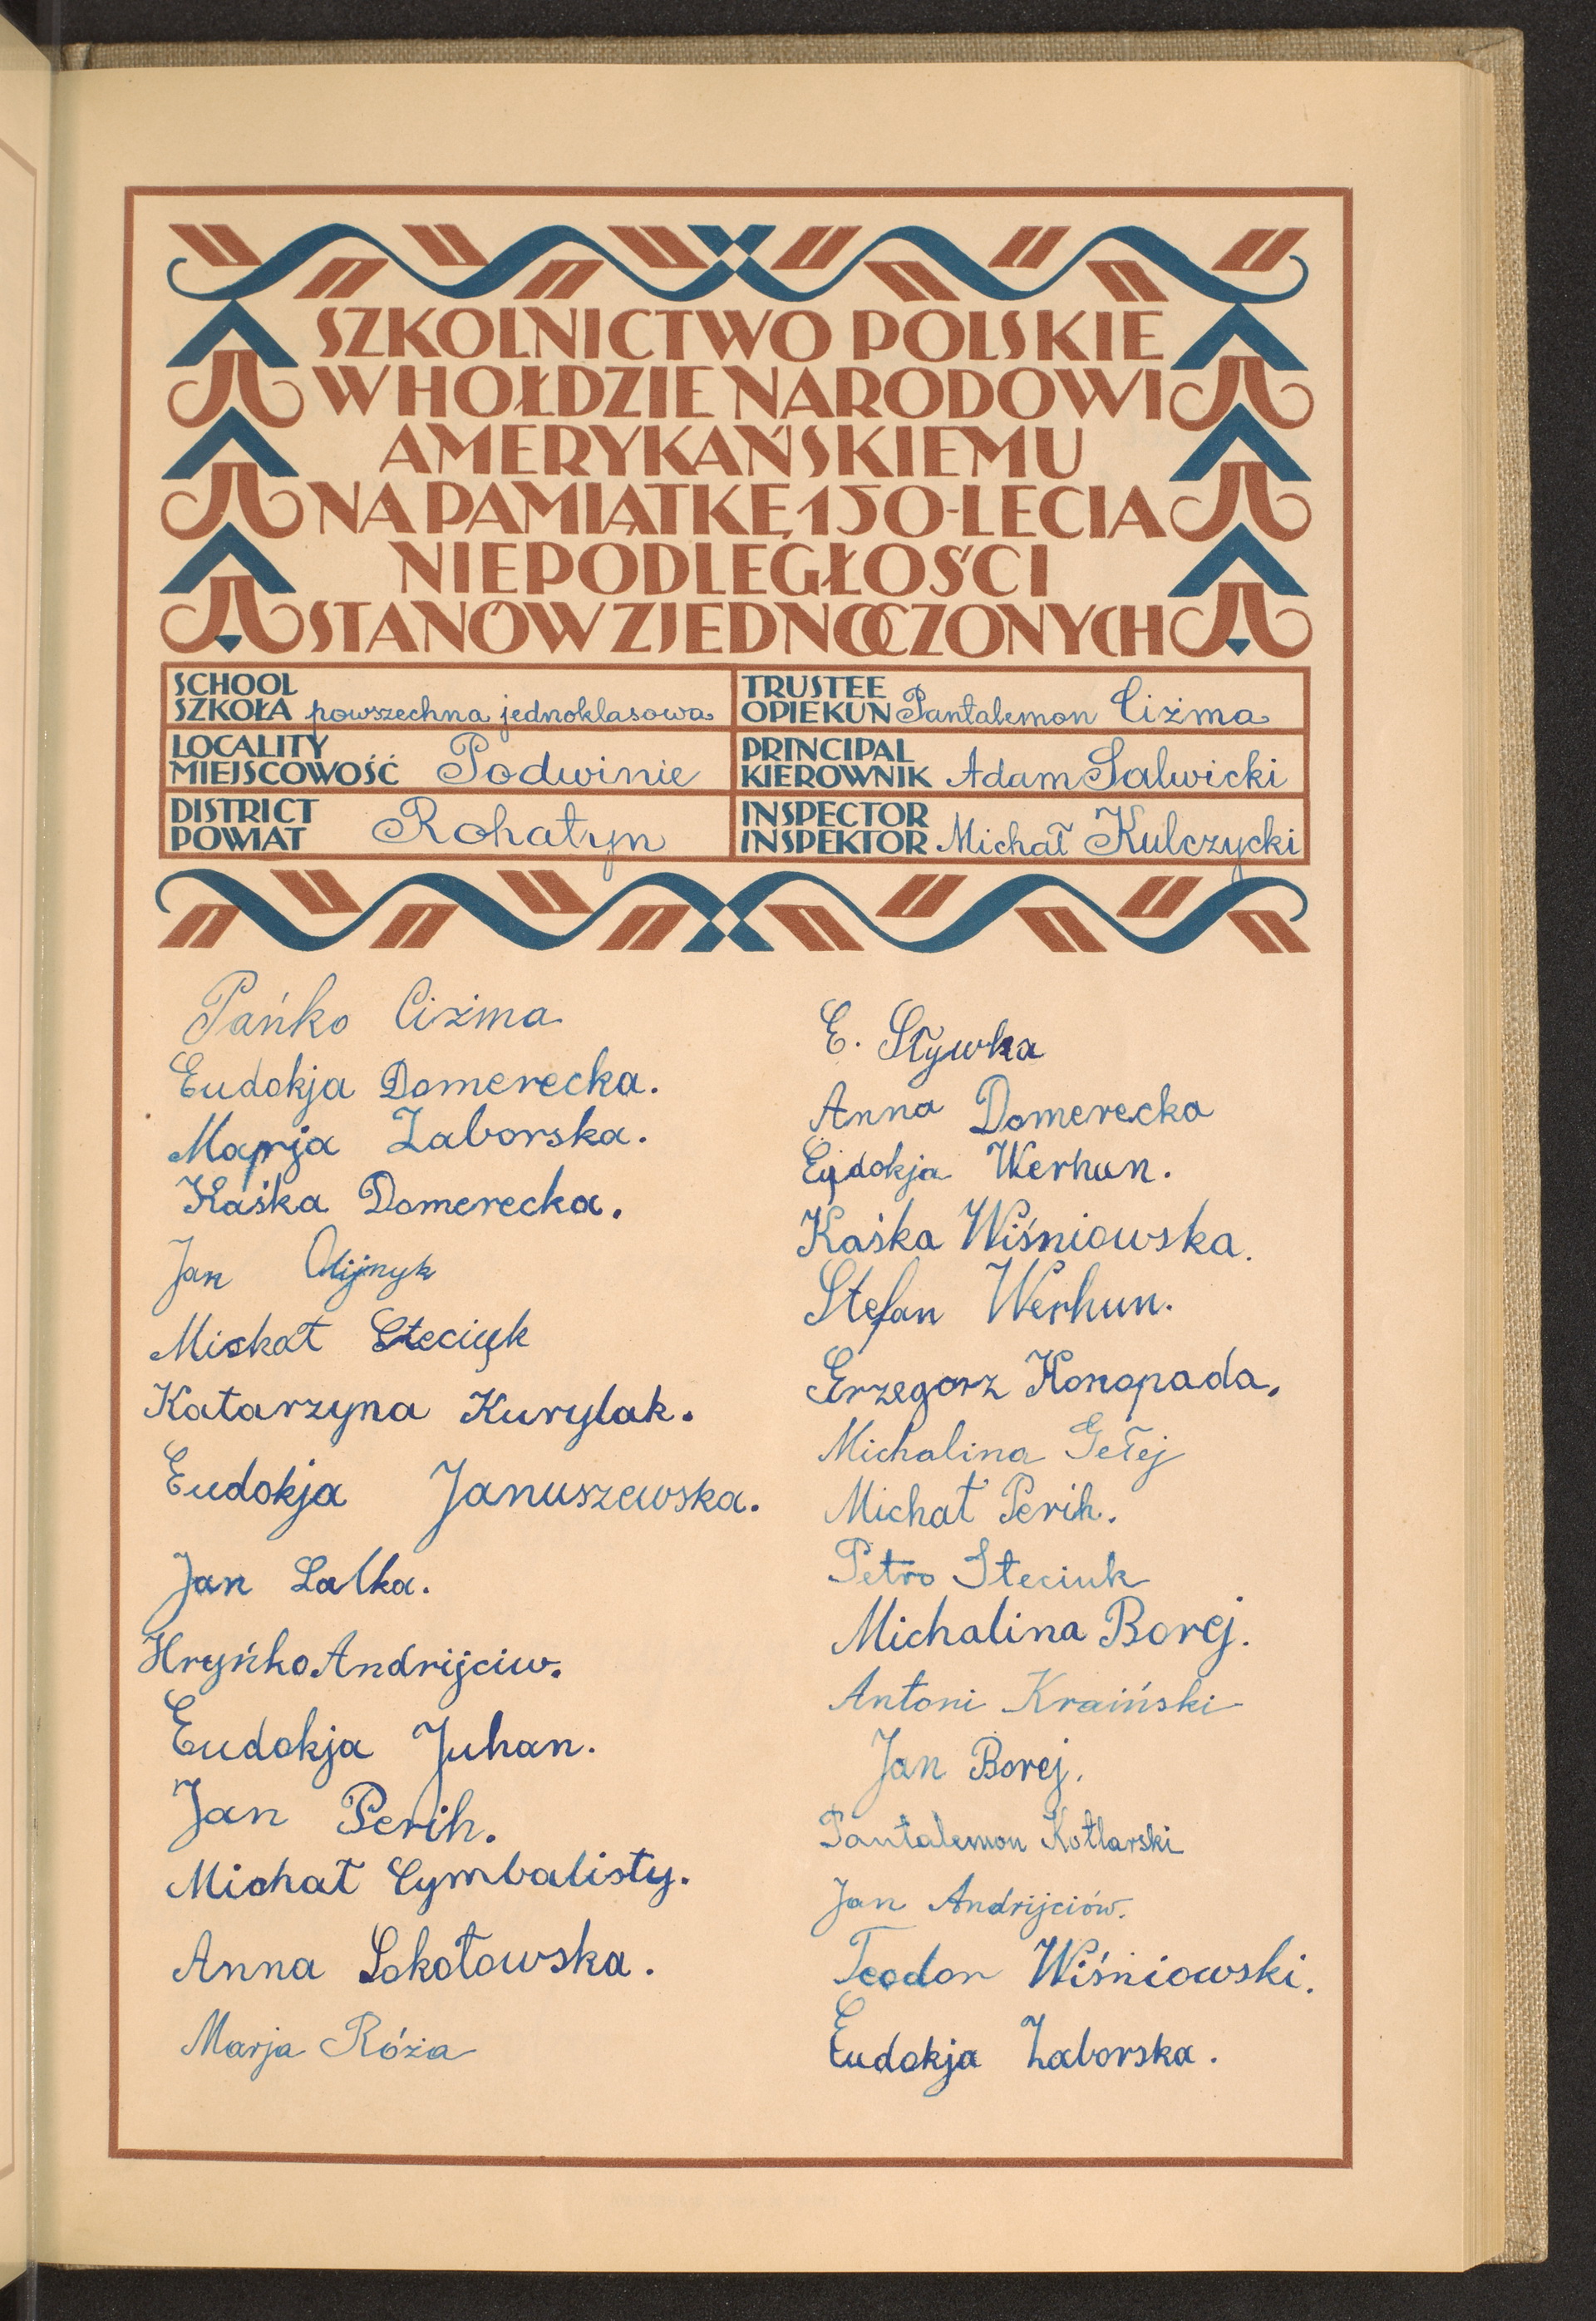 SZKOLNICTWO POLSKIE
W HOŁDZIE NARODOWI
AMERYKAŃSKIEMU
NA PAMIĄTKĘ 150-LECIA
NIEPODLEGŁOŚCI
STANÓW ZJEDNOCZONYCH
SCHOOL
SZKOŁA powszechna jednoklasowa
TRUSTEE
OPIEKUN Pantalemon Ciżma
LOCALITY
MIEJSCOWOŚĆ Podwinie
PRINCIPAL
KIEROWNIK Adam Salwicki
DISTRICT
POWIAT Rohatyn
INSPECTOR
INSPEKTOR Michał Kulczycki
Pańko Ciżma
Eudokja Domerecka.
Marja Zaborska.
Kaśka Domerecka.
Jan Olijnyk
Michał Steciuk
Katarzyna Kurylak.
Eudokja Januszewska.
Jan Lalka.
Hryńko Andrijciw.
Eudokja Juhan.
Jan Perih.
Michał Cymbalisty.
Anna Sokołowska.
Marja Róża
E. Sływka
Anna Domerecka
Eudokja Werhun.
Kaśka Wiśniowska.
Stefan Werhun.
Grzegorz Konopada.
Michalina Gełej
Michał Perih.
Petro Steciuk
Michalina Borej.
Antoni Kraiński
Jan Borej.
Pantalemon Kotlarski
Jan Andrijciów.
Teodor Wiśniowski.
Eudokja Zaborska.